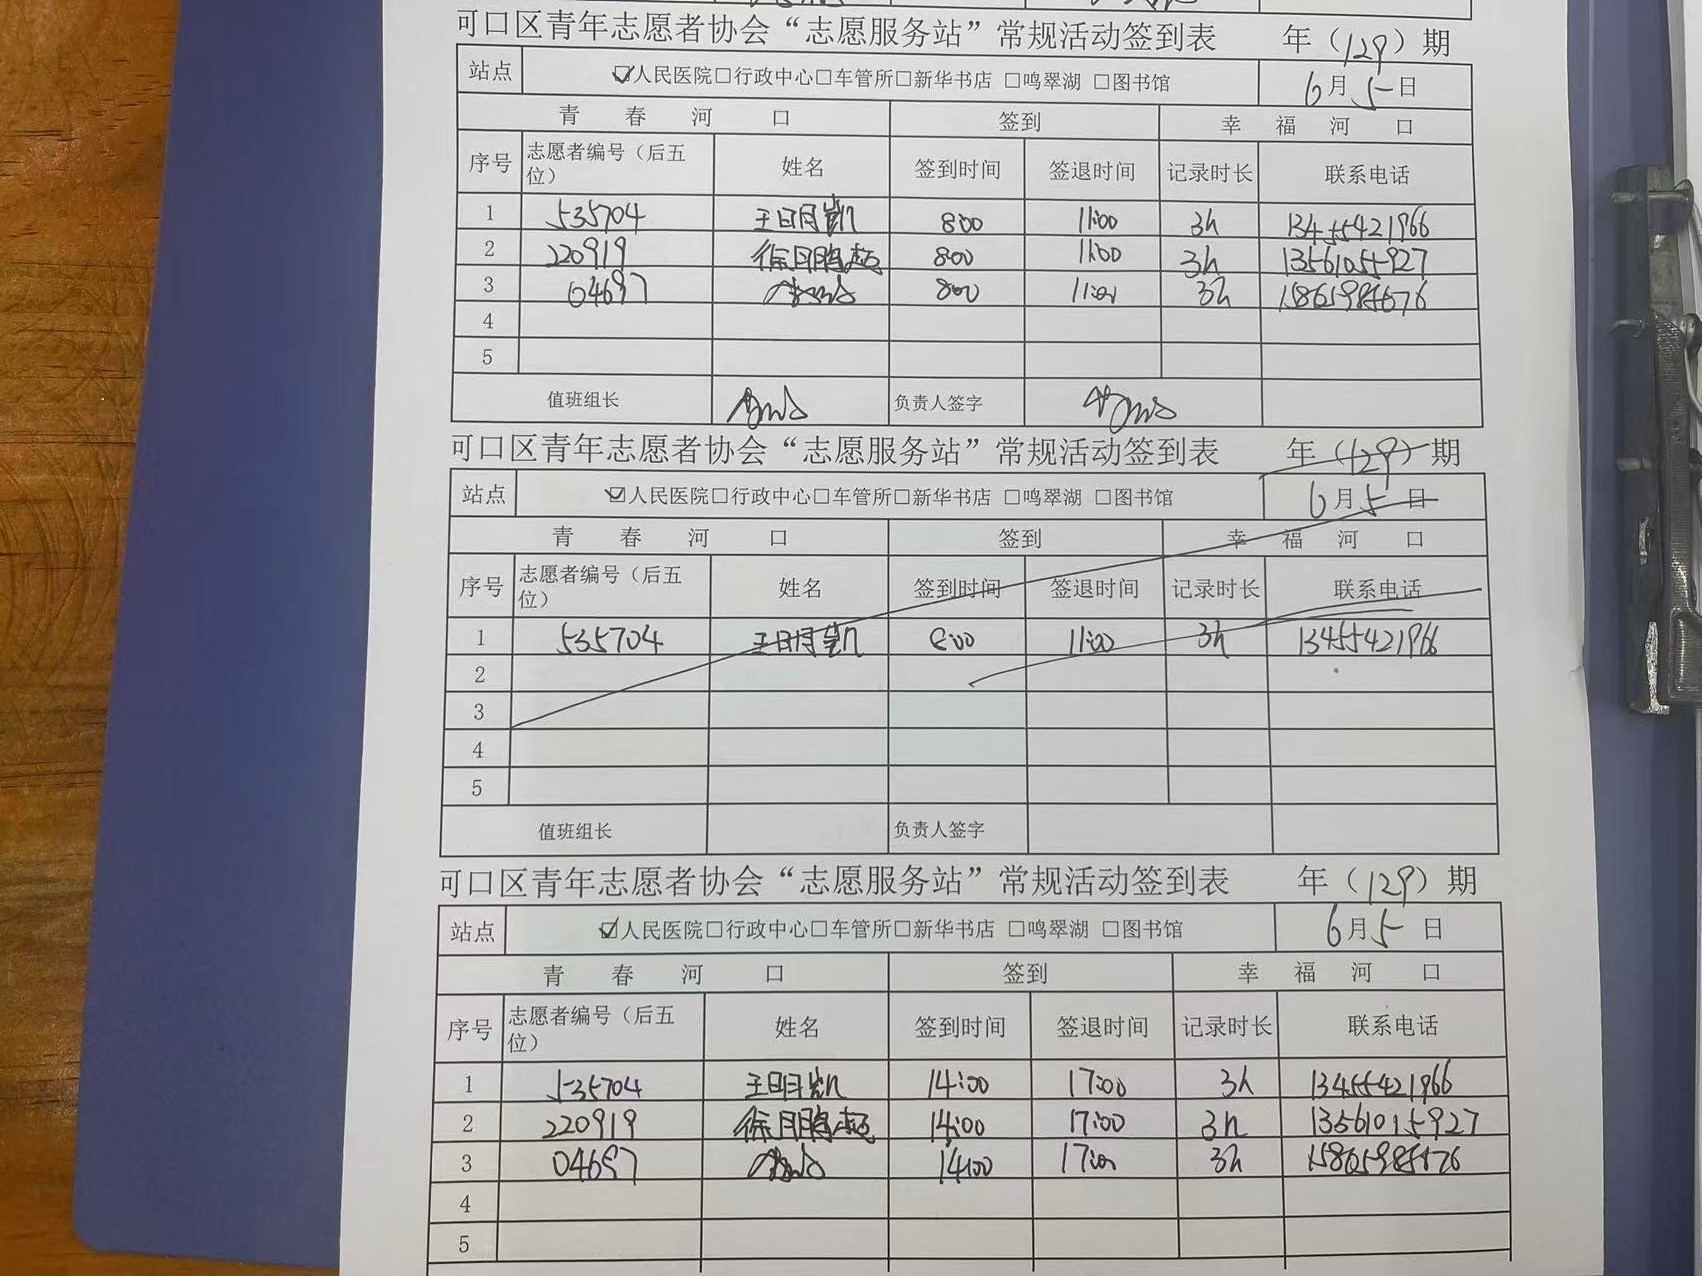 可口区青年志愿者协会“志愿服务站”常规活动签到表 年（129）期
站点 ☑人民医院□行政中心□车管所□新华书店 □鸣翠湖 □图书馆 6月5日
青春河口 签到 幸福河口
序号 志愿者编号（后五位） 姓名 签到时间 签退时间 记录时长 联系电话
1 535704 王明凯 8:00 11:00 3h 13455421966
2 220919 徐鹏超 8:00 11:00 3h 13561055927
3 04697 8:00 11:00 3h
4
5
值班组长 负责人签字
可口区青年志愿者协会“志愿服务站”常规活动签到表 年（129）期
站点 ☑人民医院□行政中心□车管所□新华书店 □鸣翠湖 □图书馆 6月5日
青春河口 签到 幸福河口
序号 志愿者编号（后五位） 姓名 签到时间 签退时间 记录时长 联系电话
1 535704 王明凯 8:00 11:00 3h 13455421966
2
3
4
5
值班组长 负责人签字
可口区青年志愿者协会“志愿服务站”常规活动签到表 年（129）期
站点 ☑人民医院□行政中心□车管所□新华书店 □鸣翠湖 □图书馆 6月5日
青春河口 签到 幸福河口
序号 志愿者编号（后五位） 姓名 签到时间 签退时间 记录时长 联系电话
1 535704 王明凯 14:00 17:00 3h 13455421966
2 220919 徐鹏超 14:00 17:00 3h
3 04697 14:00 17:00 3h
4
5